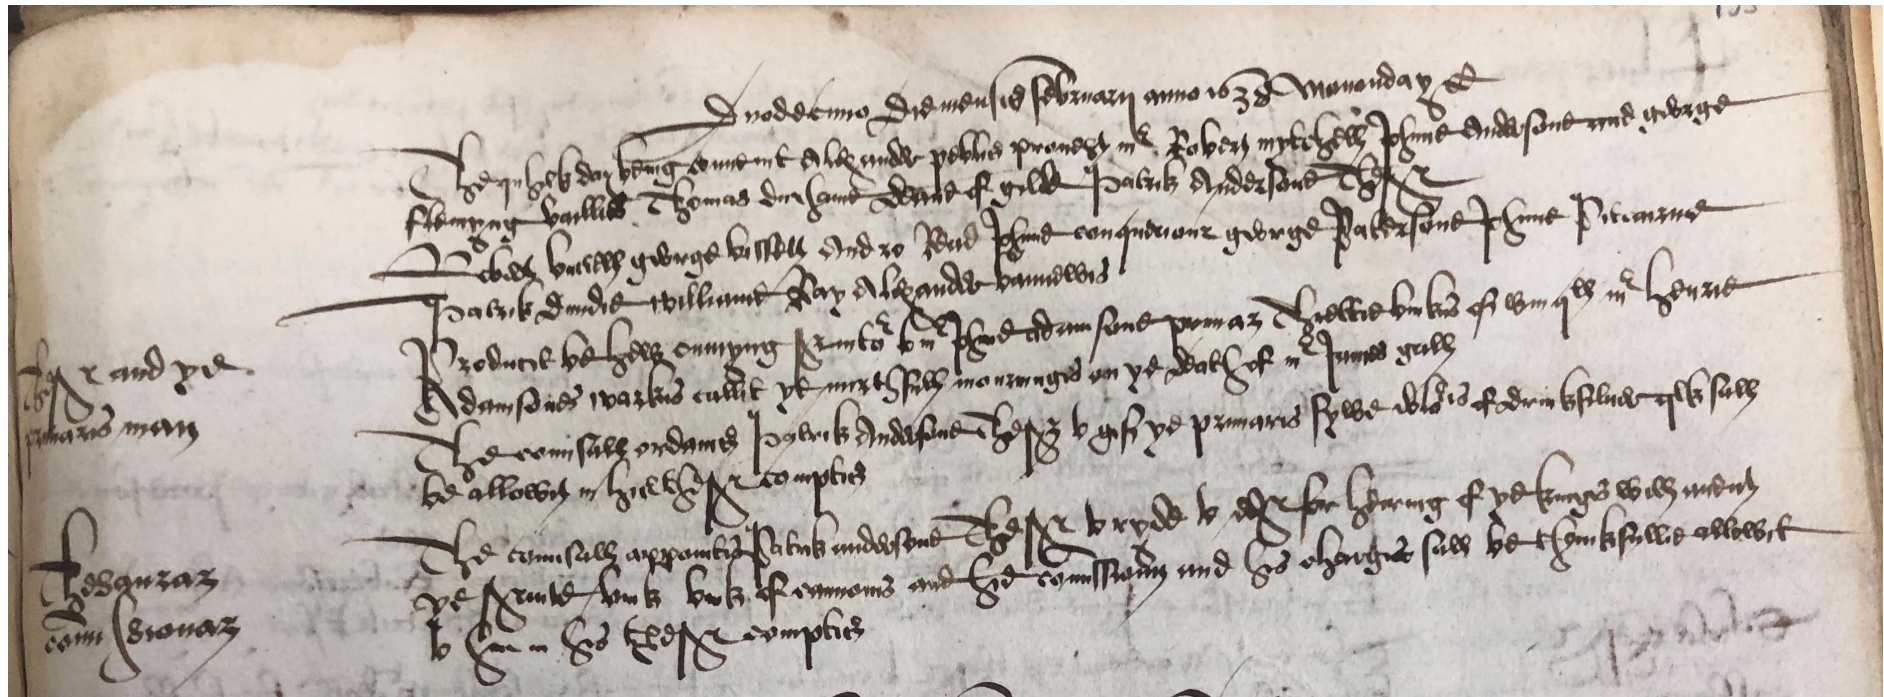 Duodecimo die mensis februarii anno 1638 Mononday
The quhilk day being convenit Alexander peblis proveist mr Robert mytchell Jhone Andersone and george
flemyng baillies Thomas durhame deane of gild Patrik Andersone Thesr
george bissett Andro Reid Jhone conquerour george Patersone Jhone Pitcairne
Patrik dundie williame Ray Alexander
Producit be Jhone adamsone primar threttie buikis of wmqll mr henrie
Adamsones warkis callit ye mirthfull mourningis on ye death of mr James gall
The counsall ordaines Patrik Andersone Thesr to gif ye primaris fywe of drinksilver qlk sall
be allowit in his thesr comptis
The counsall appointis Patrik andersone Thesr to ryde to edr for heiring of ye kingis will anent
ye buik of cannonis and hie comissioun and his chargis sall be thankfullie allowit
to him in his thesr comptis
Thesr and ye
primaris man
Thesaurar
comissionar